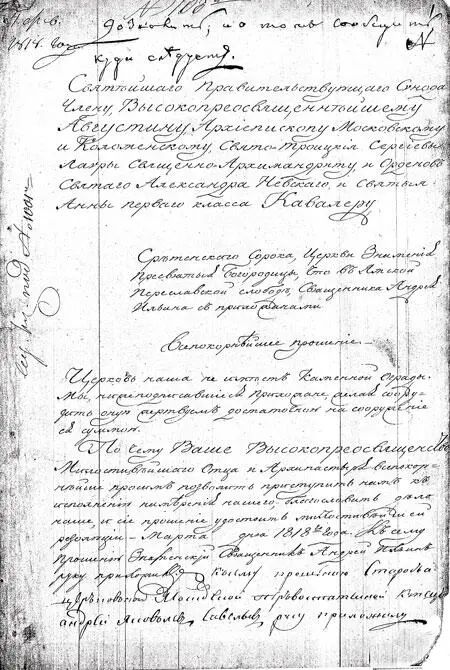 1818 года
дозволить, и о томъ сообщить
куда слѣдуетъ.
Святѣйшаго Правительствующаго Сѵнода
Члену, Высокопреосвященнѣйшему
Августину, Архіепископу Московскому
и Коломенскому, Свято-Троицкія Сергіевы
Лавры Священно-Архимандриту и Орденовъ
Святаго Александра Невскаго, и Святыя
Анны перваго класса Кавалеру
Срѣтенскаго Сорока, Церкви Знаменія
Пресвятыя Богородицы, что въ Ямской
Переславской слободѣ, Священника Андрея
Ильина съ прихожанами
Всепокорнѣйшее прошеніе.
Церковь наша не имѣетъ каменной ограды.
Мы, нижеподписавшіеся прихожане желая соору-
дить оную жертвуемъ достаточною на сооруженіе
ея суммою.
По чему Ваше Высокопреосвященство
Милостивѣйшаго Отца и Архипастыря всепокор-
нѣйше просимъ позволить приступить намъ къ
исполненію намѣренія нашего, благословить дѣло
наше, и сіе прошеніе удостоить милостивѣйшей
резолюціи. – Марта дня 1818го года. Къ сему
прошенію Знаменскій Священникъ Андрей Ильинъ
руку приложилъ Къ сему прошенію Староста
Церковной Московской купецъ
Андрей Яковлевъ Савельевъ руку приложилъ